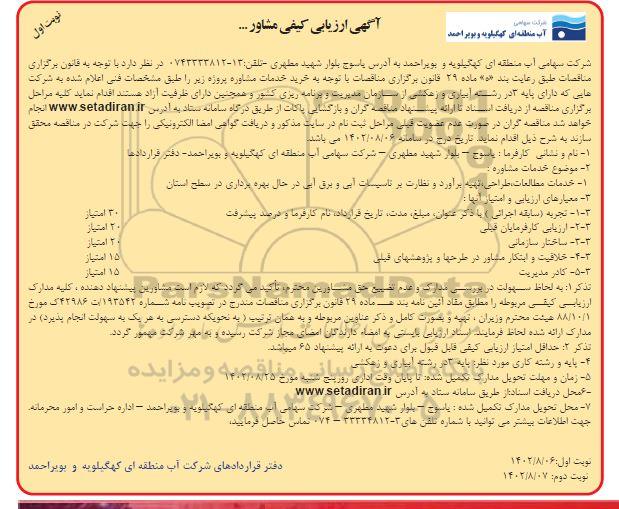 نوبت اول
شرکت سهامی
آب منطقه ای کهگیلویه و بویر احمد
آگهی ارزیابی کیفی مشاور ...
شرکت سهامی آب منطقه ای کهگیلویه و بویراحمد به آدرس یاسوج بلوار شهید مطهری -تلفن:۱۳-۰۷۴۳۳۳۳۸۱۲ در نظر دارد با توجه به قانون برگزاری
مناقصات طبق رعایت بند «ه» ماده ۲۹ قانون برگزاری مناقصات با توجه به خرید خدمات مشاوره پروژه زیر را طبق مشخصات فنی اعلام شده به شرکت
هایی که دارای پایه ۳در رشته آبیاری و زهکشی از سازمان مدیریت و برنامه ریزی کشور و همچنین دارای ظرفیت آزاد هستند اقدام نماید کلیه مراحل
برگزاری مناقصه از دریافت اسناد تا ارائه پیشنهاد مناقصه گران و بازگشایی پاکات از طریق درگاه سامانه ستاد به آدرس www.setadiran.ir انجام
خواهد شد مناقصه گران در صورت عدم عضویت قبلی مراحل ثبت نام در سایت مذکور و دریافت گواهی امضا الکترونیکی را جهت شرکت در مناقصه محقق
سازند به شرح ذیل اقدام نماید. تاریخ درج در سامانه ۱۴۰۲/۰۸/۰۶ می باشد.
۱- نام و نشانی کارفرما : یاسوج – بلوار شهید مطهری – شرکت سهامی آب منطقه ای کهگیلویه و بویراحمد- دفتر قراردادها
۲- موضوع خدمات مشاوره :
۱- خدمات مطالعات،طراحی،تهیه برآورد و نظارت بر تاسیسات آبی و برق آبی در حال بهره برداری در سطح استان
۳- معیارهای ارزیابی و امتیاز آنها :
۳-۱- تجربه (سابقه اجرائی ) با ذکر عنوان، مبلغ، مدت، تاریخ قرارداد، نام کارفرما و درصد پیشرفت ۳۰ امتیاز
۳-۲- ارزیابی کارفرمایان قبلی ۲۰ امتیاز
۳-۳- ساختار سازمانی ۲۰ امتیاز
۳-۴- خلاقیت و ابتکار مشاور در طرحها و پژوهشهای قبلی ۱۵ امتیاز
۳-۵- کادر مدیریت ۱۵ امتیاز
تذکر۱: به لحاظ سهولت در بررسی مدارک و عدم تضییع حق مشاورین محترم، تأکید می گردد که لازم است مشاورین پیشنهاد دهنده ، کلیه مدارک
ارزیابی کیفی مربوطه را مطابق مفاد آئین نامه بند هـ ماده ۲۹ قانون برگزاری مناقصات مندرج در تصویب نامه شماره ۱۹۳۵۴۲/ت ۴۲۹۸۶ک مورخ
۸۸/۱۰/۱ هیئت محترم وزیران ، تهیه و بصورت کامل و ذکر عناوین مربوطه و به همان ترتیب ( به نحویکه دسترسی به هر یک به سهولت انجام پذیرد) در
مدارک ارائه شده لحاظ فرمایند. اسناد ارزیابی بایستی به امضاء دارندگان امضای مجاز شرکت رسیده و به مهر شرکت ممهور گردد.
تذکر ۲: حداقل امتیاز ارزیابی کیفی قابل قبول برای دعوت به ارائه پیشنهاد ۶۵ میباشد.
۴- پایه و رشته کاری مورد نظر: پایه ۳در رشته آبیاری و زهکشی
۵- زمان و مهلت تحویل مدارک تکمیل شده: تا پایان وقت اداری روزپنج شنبه مورخ ۱۴۰۲/۰۸/۲۵
۶-محل دریافت اسناد:از طریق سامانه ستاد به آدرس www.setadiran.ir
۷- محل تحویل مدارک تکمیل شده : یاسوج – بلوار شهید مطهری – شرکت سهامی آب منطقه ای کهگیلویه و بویراحمد – اداره حراست و امور محرمانه.
جهت اطلاعات بیشتر می توانید با شماره تلفن های۳-۳۳۳۳۴۸۱۲ – ۰۷۴ تماس حاصل فرمایید.
نوبت اول:۱۴۰۲/۸/۰۶
نوبت دوم: ۱۴۰۲/۸/۰۷
دفتر قراردادهای شرکت آب منطقه ای کهگیلویه و بویراحمد